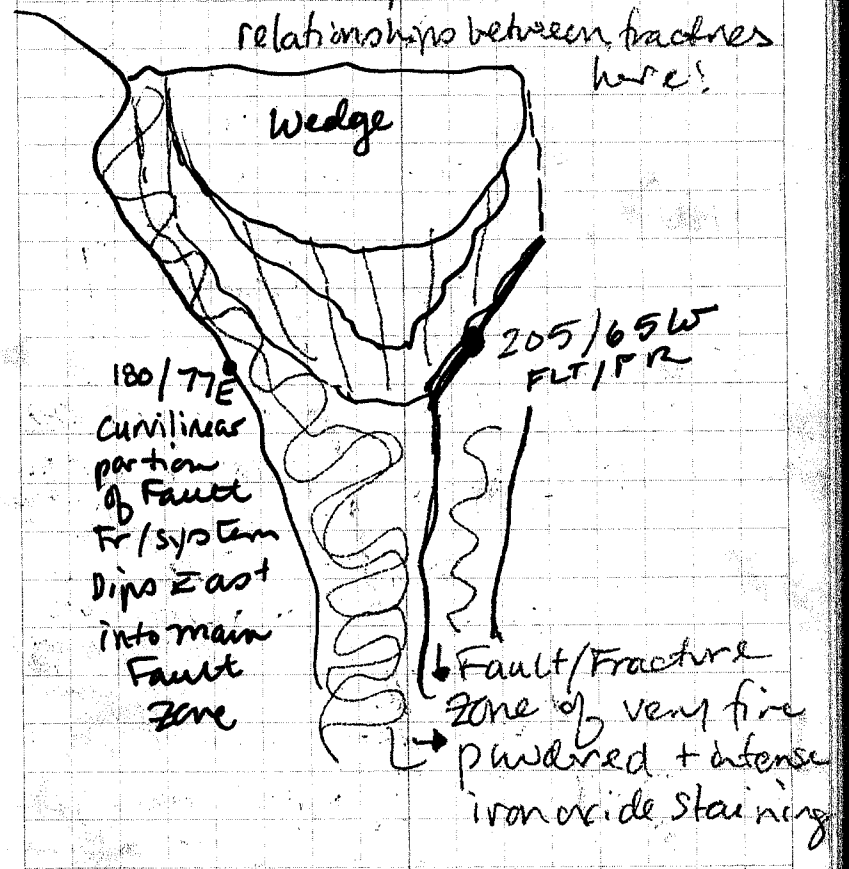 relationships between fractures
here!
Wedge
205/65W
FLT/FR
180/77E
Curvilinear
portion
of Fault
Fr/system
Dips East
into main
Fault
Zone
Fault/Fracture
Zone of very fine
powdered + intense
iron oxide staining